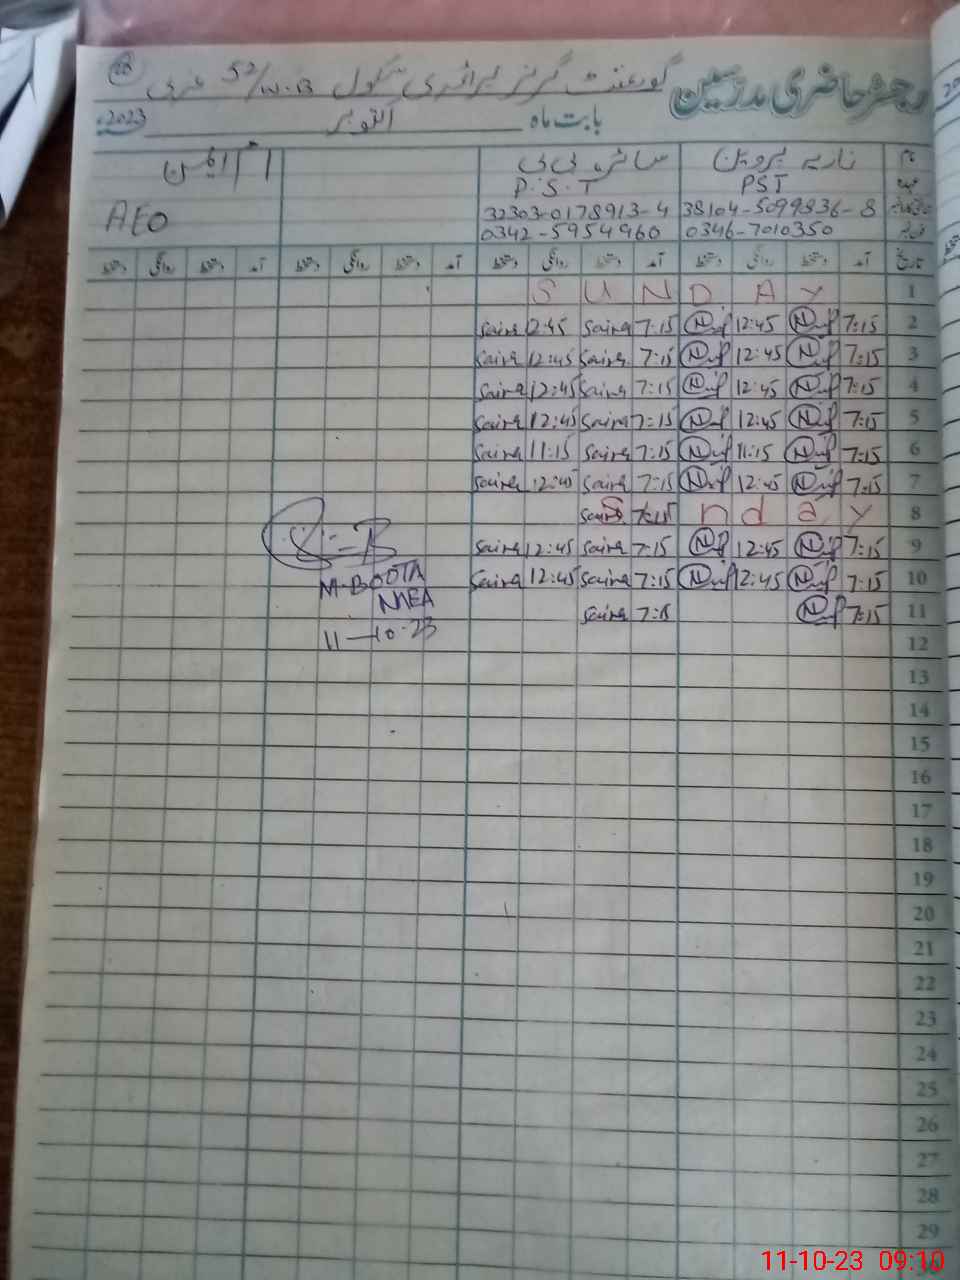 رجسٹر حاضری مدرسین گورنمنٹ گرلز پرائمری سکول 52/W.B غربی
بابت ماہ اکتوبر 2023ء
نام نادیہ پروین سائرہ بی بی
عہدہ PST P.S.T AEO
38104-5099836-8 32303-0178913-4
0346-7010350 0342-5954960
تاریخ آمد دستخط روانگی دستخط آمد دستخط روانگی دستخط آمد دستخط روانگی دستخط آمد دستخط روانگی دستخط
1 S U N D A Y
2 7:15 12:45 7:15 Saira 2:45 Saira
3 7:15 12:45 7:15 Saira 12:45 Saira
4 7:15 12:45 7:15 Saira 12:45 Saira
5 7:15 12:45 7:15 Saira 12:45 Saira
6 7:15 11:15 7:15 Saira 11:15 Saira
7 7:15 12:45 7:15 Saira 12:45 Saira
8 S u n d a y 7:15 Saira
9 7:15 12:45 7:15 Saira 12:45 Saira
10 7:15 12:45 7:15 Saira 12:45 Saira
11 7:15 7:15 Saira
M.BOOTA
MEA
11-10-23
12
13
14
15
16
17
18
19
20
21
22
23
24
25
26
27
28
29
11-10-23 09:10